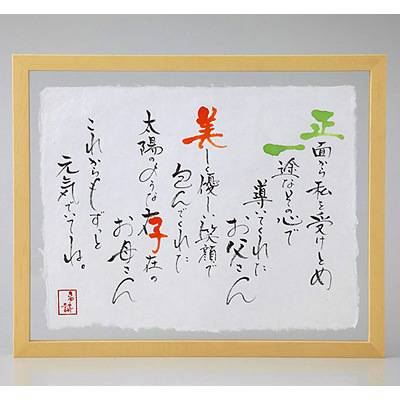 正面から私を受けとめ
一途なその心で
導いてくれた
お父さん
美しく優しい笑顔で
包んでくれた
太陽のような存在の
お母さん
これからもずっと
元気でいてね。